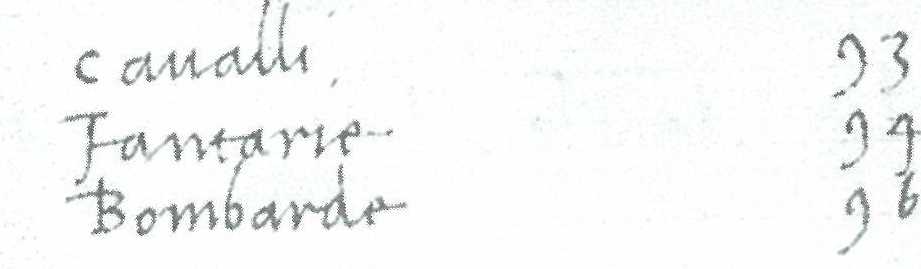 caualli 93
Fantarie 94
Bombarde 96